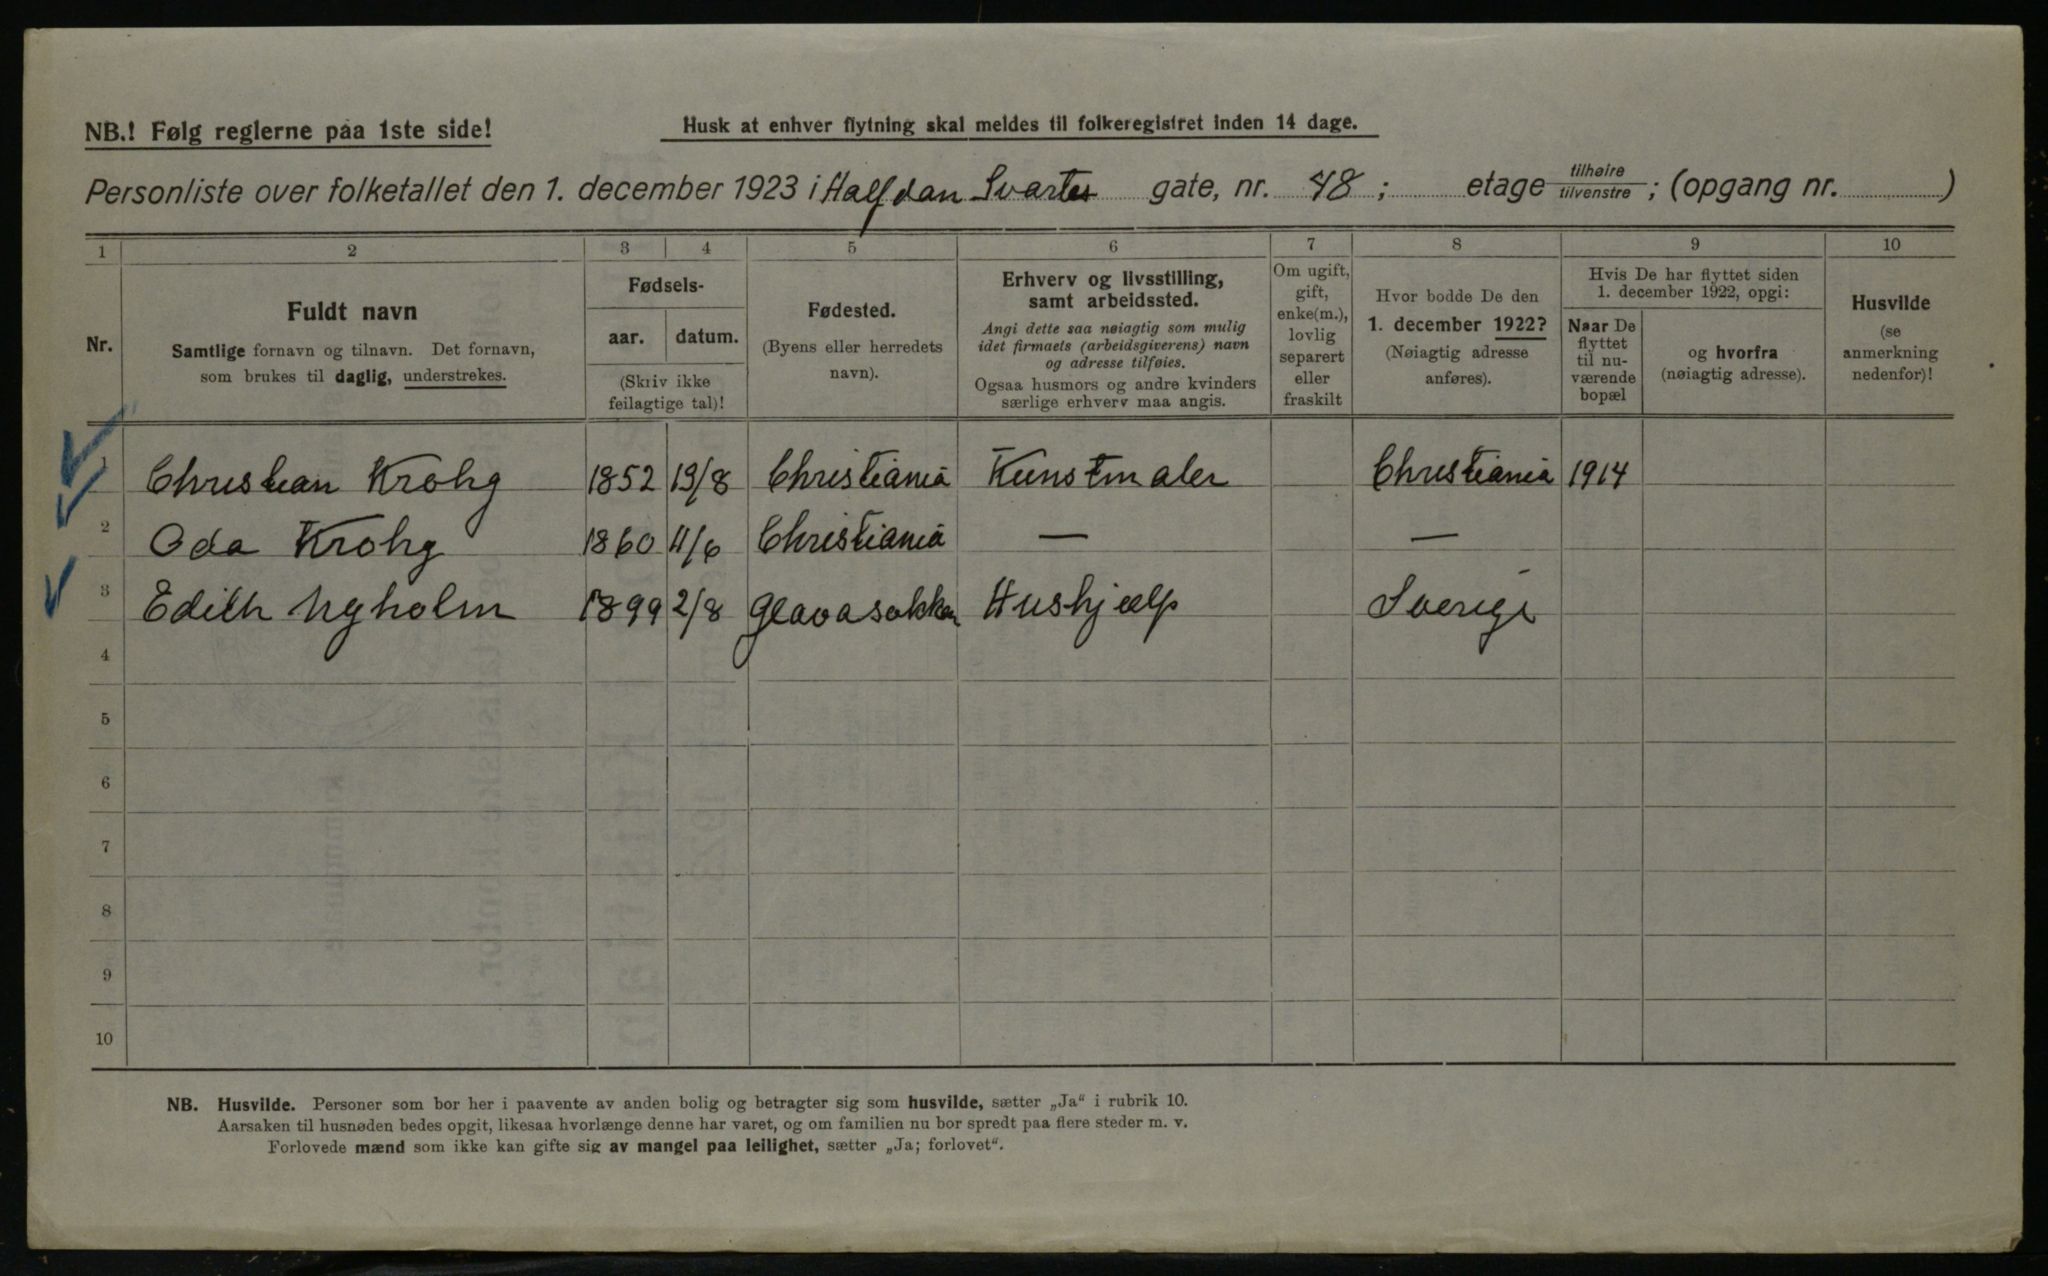 NB.! Følg reglerne paa 1ste side!
Husk at enhver flytning skal meldes til folkeregistret inden 14 dage.
Personliste over folketallet den 1. december 1923 i Halfdan Svartes gate, nr. 48 ; etage tilhøire tilvenstre ; (opgang nr. )
1 2 3 4 5 6 7 8 9 10
Nr.
Fuldt navn
Samtlige fornavn og tilnavn. Det fornavn,
som brukes til daglig, understrekes.
Fødsels-
aar. datum.
(Skriv ikke
feilagtige tal)!
Fødested.
(Byens eller herredets
navn).
Erhverv og livsstilling,
samt arbeidssted.
Angi dette saa nøiagtig som mulig
idet firmaets (arbeidsgiverens) navn
og adresse tilføies.
Ogsaa husmors og andre kvinders
særlige erhverv maa angis.
Om ugift,
gift,
enke(m.),
lovlig
separert
eller
fraskilt
Hvor bodde De den
1. december 1922?
(Nøiagtig adresse
anføres).
Hvis De har flyttet siden
1. december 1922, opgi:
Naar De
flyttet
til nu-
værende
bopæl
og hvorfra
(nøiagtig adresse).
Husvilde
(se
anmerkning
nedenfor)!
1 Christian Krohg 1852 13/8 Christiania Kunstmaler Christiania 1914
2 Oda Krohg 1860 11/6 Christiania — —
3 Edith Nyholm 1899 2/8 Glavasokken Hushjælp Sverige
4
5
6
7
8
9
10
NB. Husvilde. Personer som bor her i paavente av anden bolig og betragter sig som husvilde, sætter „Ja“ i rubrik 10.
Aarsaken til husnøden bedes opgit, likesaa hvorlænge denne har varet, og om familien nu bor spredt paa flere steder m. v.
Forlovede mænd som ikke kan gifte sig av mangel paa leilighet, sætter „Ja; forlovet“.